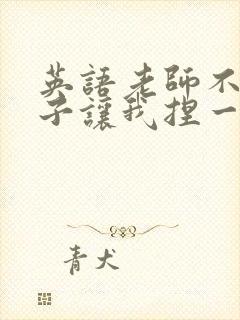 英語老師不
子讓我捏一
青犬